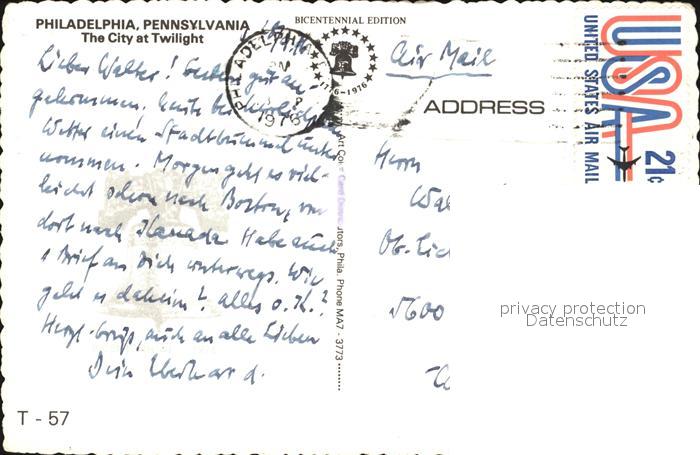 PHILADELPHIA, PENNSYLVANIA
The City at Twilight
BICENTENNIAL EDITION
PHILADELPHIA
1976
1776-1976
Air Mail
ADDRESS
USA
21c
UNITED STATES AIR MAIL
Lieber Walter! Gestern gut an-
gekommen. Heute bei
Wetter einen Stadtbummel unter-
nommen. Morgen geht es viel-
leicht schon nach Boston, von
dort nach Kanada. Habe auch
1 Brief an Dich unterwegs. Wie
geht es daheim? Alles o.K.?
Herzl. Grüße, auch an alle Lieben
Dein Eberhard.
Herrn
Wal
Ob. Lic
5600
privacy protection
Datenschutz
utors, Phila. Phone MA7 - 3773
T - 57